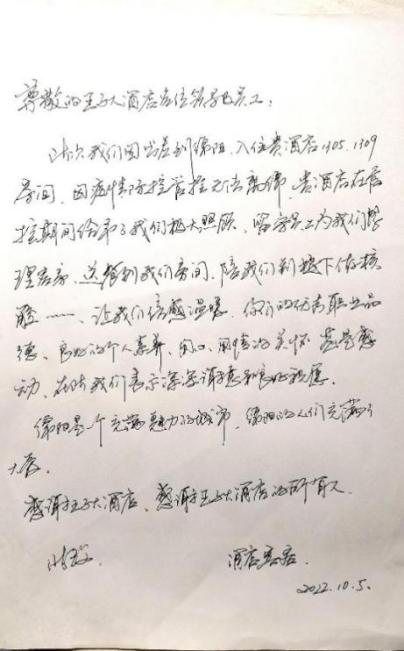 尊敬的王子大酒店各位领导及员工:
此次我们因出差到绵阳、入住贵酒店1305、1309
房间,因疫情防控管控无法离绵,贵酒店在管
控期间给予了我们极大照顾,留守员工为我们整
理客房、送餐到我们房间、陪我们到楼下做核
酸……、让我们倍感温暖。你们的优秀职业品
德、良好的个人素养、用心、用情的关怀甚是感
动,在此我们表示深深谢意和良好祝愿。
绵阳是一个充满魅力的城市,绵阳的人们充满了
大爱。
感谢王子大酒店、感谢王子大酒店的所有人。
此致
酒店客居
2022.10.5.